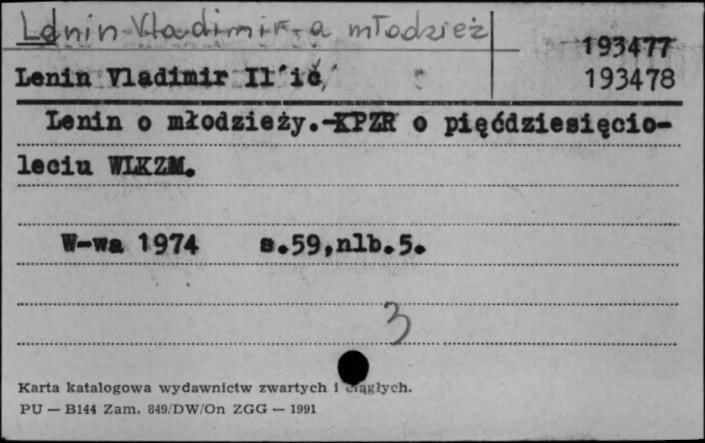 Lenin Vladimir. a młodzież
193477
Lenin Vladimir Il'ič
193478
Lenin o młodzieży.-KPZR o pięćdziesięcio-
leciu WLKZM.
W-wa 1974 s.59,nlb.5.
3
Karta katalogowa wydawnictw zwartych i ciągłych.
PU — B144 Zam. 849/DW/On ZGG — 1991